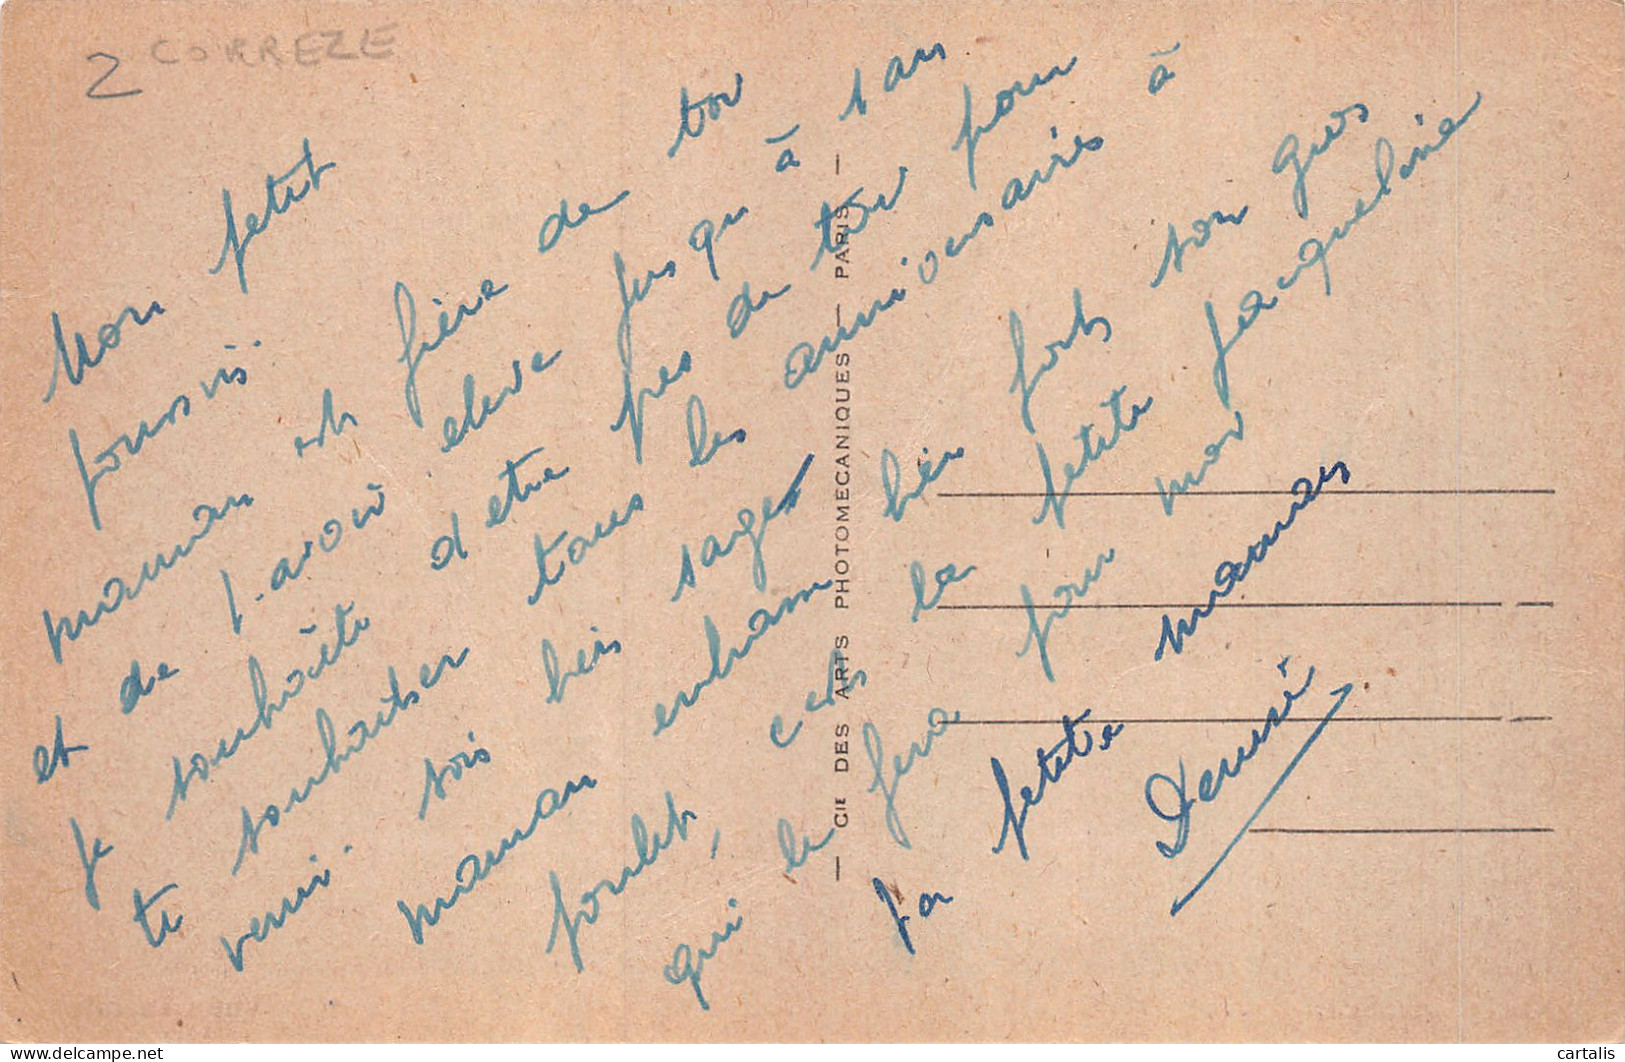 2 CORREZE
Mon petit
maman est fière de toi
et de t'avoir élevé jusqu à 1 an
je souhaite d etre pres de toi pour
te souhaiter tous les anniversaires à
venir. sois bien sages
maman embrasse bien forts son gros
poulet, cest la petite Jacqueline
qui le fera pour moi
ta petite maman
Denise
— CIE DES ARTS PHOTOMECANIQUES — PARIS —
cartalis